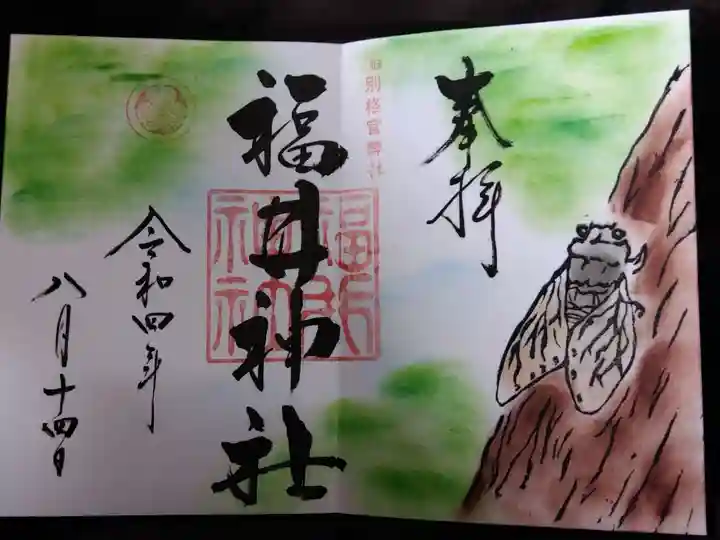 奉拝
旧別格官幣社
福井神社
福井
神社
令和四年
八月十四日